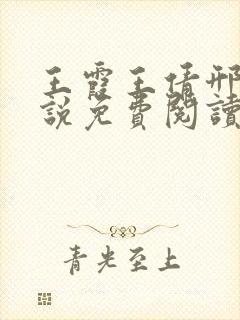 王霞王倩邢
說免費閱讀
青光至上